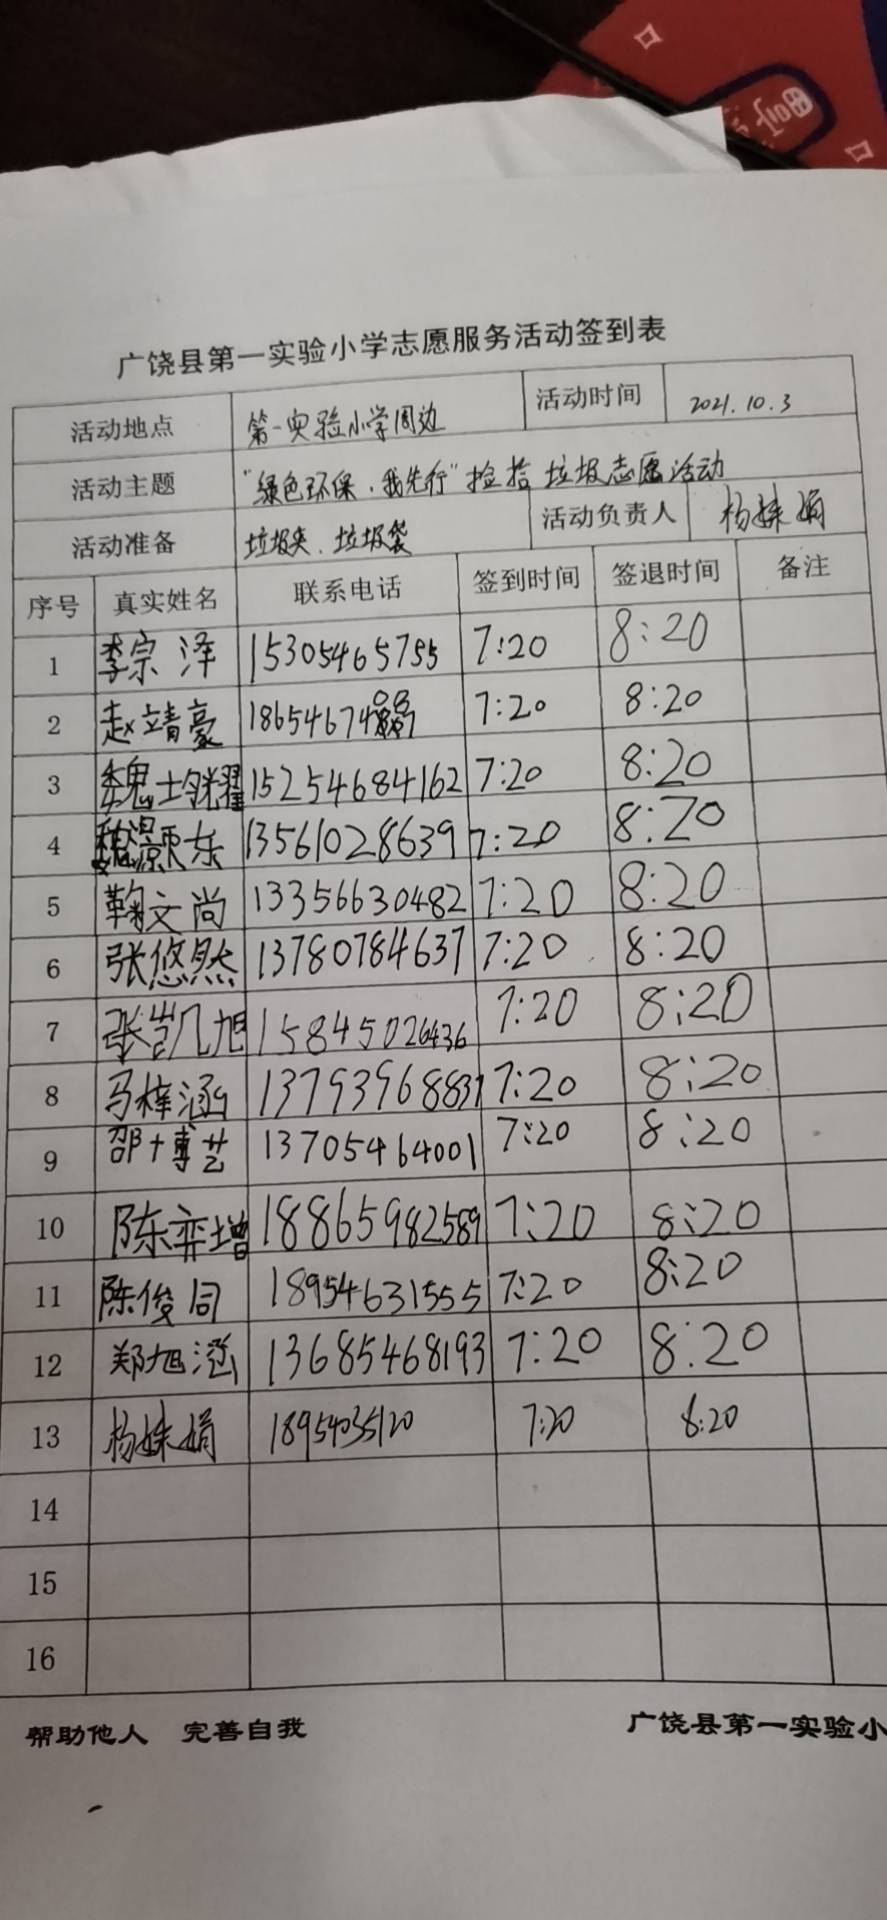 广饶县第一实验小学志愿服务活动签到表
活动地点 第一实验小学周边 活动时间 2021.10.3
活动主题 "绿色环保，我先行"捡拾垃圾志愿活动
活动准备 垃圾夹、垃圾袋 活动负责人 杨姝娟
序号 真实姓名 联系电话 签到时间 签退时间 备注
1 李宗泽 15305465755 7:20 8:20
2 赵靖豪 7:20 8:20
3 魏士均耀 15254684162 7:20 8:20
4 魏灏东 13561028639 7:20 8:20
5 鞠文尚 13356630482 7:20 8:20
6 张悠然 13780784637 7:20 8:20
7 张凯旭 15845026436 7:20 8:20
8 马梓涵 13793968837 7:20 8:20
9 邵博艺 13705464001 7:20 8:20
10 陈弈增 18865982589 7:20 8:20
11 陈俊同 18954631555 7:20 8:20
12 郑旭涵 13685468193 7:20 8:20
13 杨姝娟 18954035120 7:20 8:20
14
15
16
帮助他人 完善自我 广饶县第一实验小